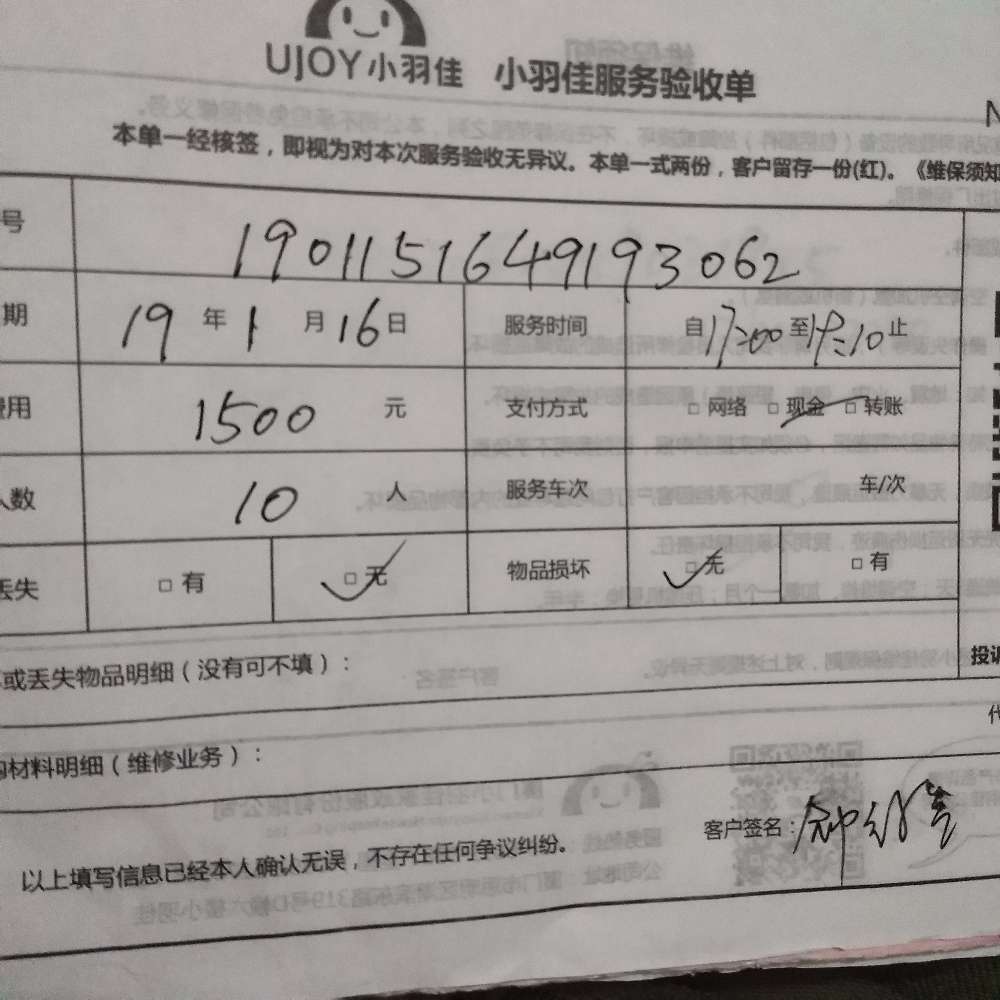 UJOY小羽佳 小羽佳服务验收单
N
本单一经核签，即视为对本次服务验收无异议。本单一式两份，客户留存一份(红)。《维保须知
号 1901151649193062
期 19年1月16日 服务时间 自17:00至19:10止
费用 1500元 支付方式 □网络 □现金 □转账
人数 10人 服务车次 车/次
丢失 □有 □无 物品损坏 □无 □有
或丢失物品明细（没有可不填）：
投诉
代
材料明细（维修业务）：
以上填写信息已经本人确认无误，不存在任何争议纠纷。
客户签名：